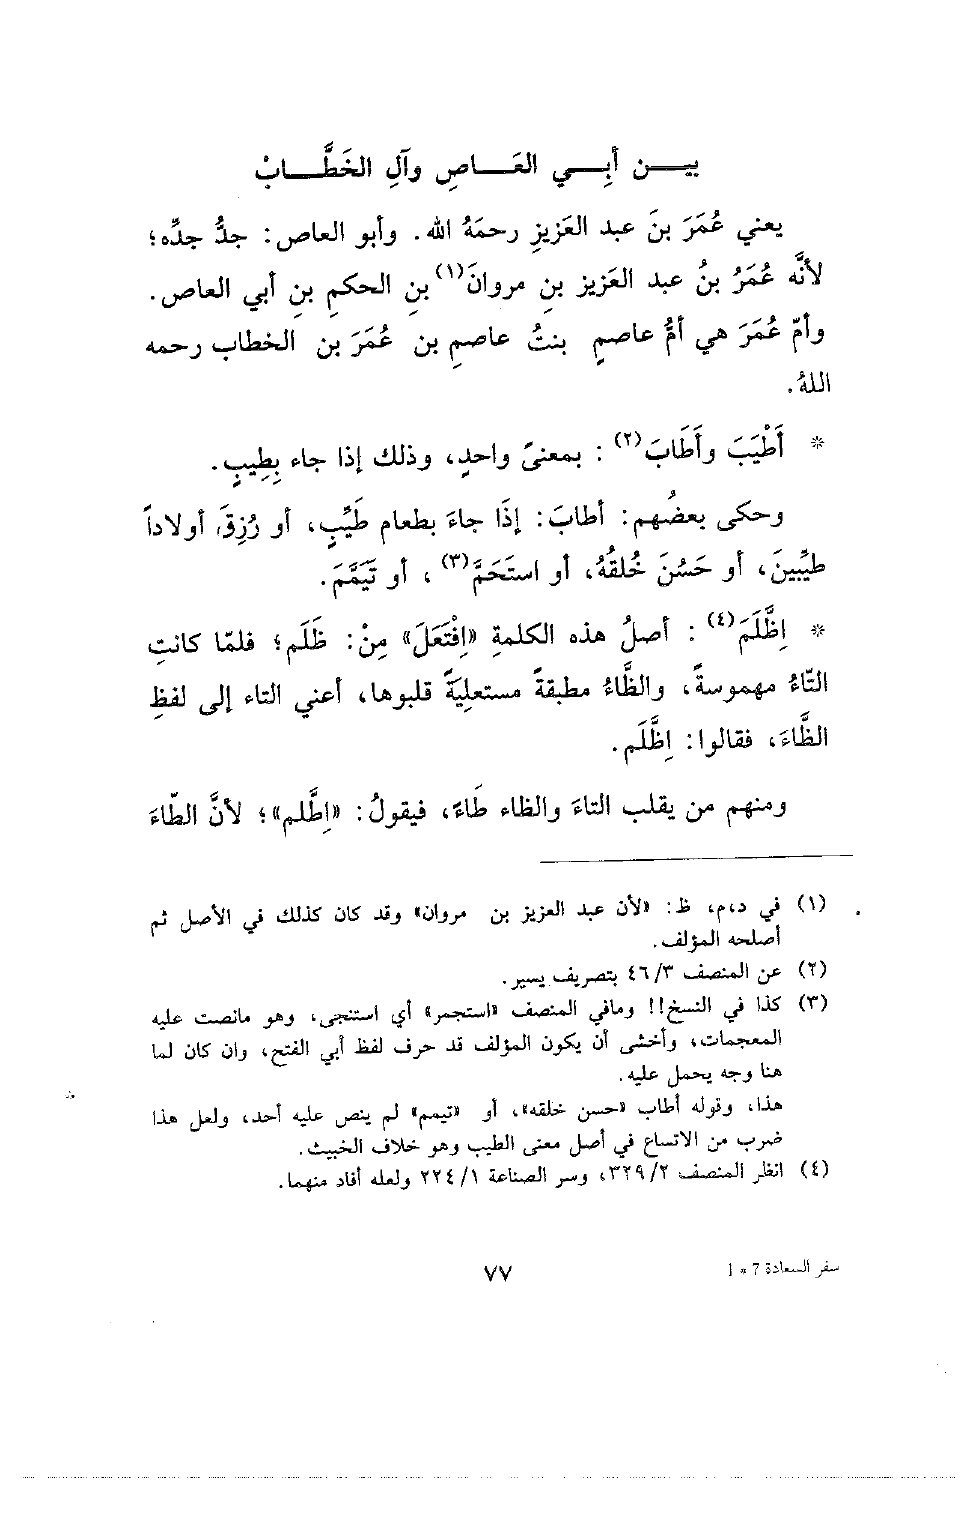 بيـــن أَبِـــي العَـــاصِ وآلِ الخَطَّـــابْ
يعني عُمَرَ بنَ عبد العَزيزِ رحمَهُ الله. وأبو العاص: جدُّ جدِّه؛
لأنَّه عُمَرُ بنُ عبد العَزيز بنِ مروانَ(١) بنِ الحكمِ بنِ أبي العاص.
وأمّ عُمَرَ هي أمُّ عاصمٍ بنتُ عاصمِ بن عُمَرَ بن الخطاب رحمه
اللهُ.
* أَطْيَبَ وأَطَابَ(٢) : بمعنىً واحدٍ، وذلك إذا جاء بِطِيبٍ.
وحكى بعضُهم: أطابَ: إذَا جاءَ بطعام طَيِّبٍ، أو رُزِقَ أولاداً
طيِّبينَ، أو حَسُنَ خُلقُهُ، أو استَحَمَّ(٣) ، أو تَيَمَّمَ.
* اِظَّلَمَ(٤) : أصلُ هذه الكلمةِ «اِفْتَعَلَ» مِنْ: ظَلَم؛ فلمّا كانتِ
التّاءُ مهموسةً، والظَّاءُ مطبقةً مستعلِيَةً قلبوها، أعني التاء إلى لفظِ
الظَّاءَ، فقالوا: اِظَّلَم.
ومنهم من يقلب التاءَ والظاء طَاءً، فيقولُ: «اِطَّلم»؛ لأنَّ الطّاءَ
(١) في د،م، ظ: «لأن عبد العزيز بن مروان» وقد كان كذلك في الأصل ثم
أصلحه المؤلف.
(٢) عن المنصف ٤٦/٣ بتصريف يسير.
(٣) كذا في النسخ!! ومافي المنصف «استجمر» أي استنجى، وهو مانصت عليه
المعجمات، وأخشى أن يكون المؤلف قد حرف لفظ أبي الفتح، وان كان لما
هنا وجه يحمل عليه.
هذا، وقوله أطاب «حسن خلقه»، أو «تيمم» لم ينص عليه أحد، ولعل هذا
ضرب من الاتساع في أصل معنى الطيب وهو خلاف الخبيث.
(٤) انظر المنصف ٣٢٩/٢، وسر الصناعة ٢٢٤/١ ولعله أفاد منهما.
سفر السعادة 7 * 1
٧٧